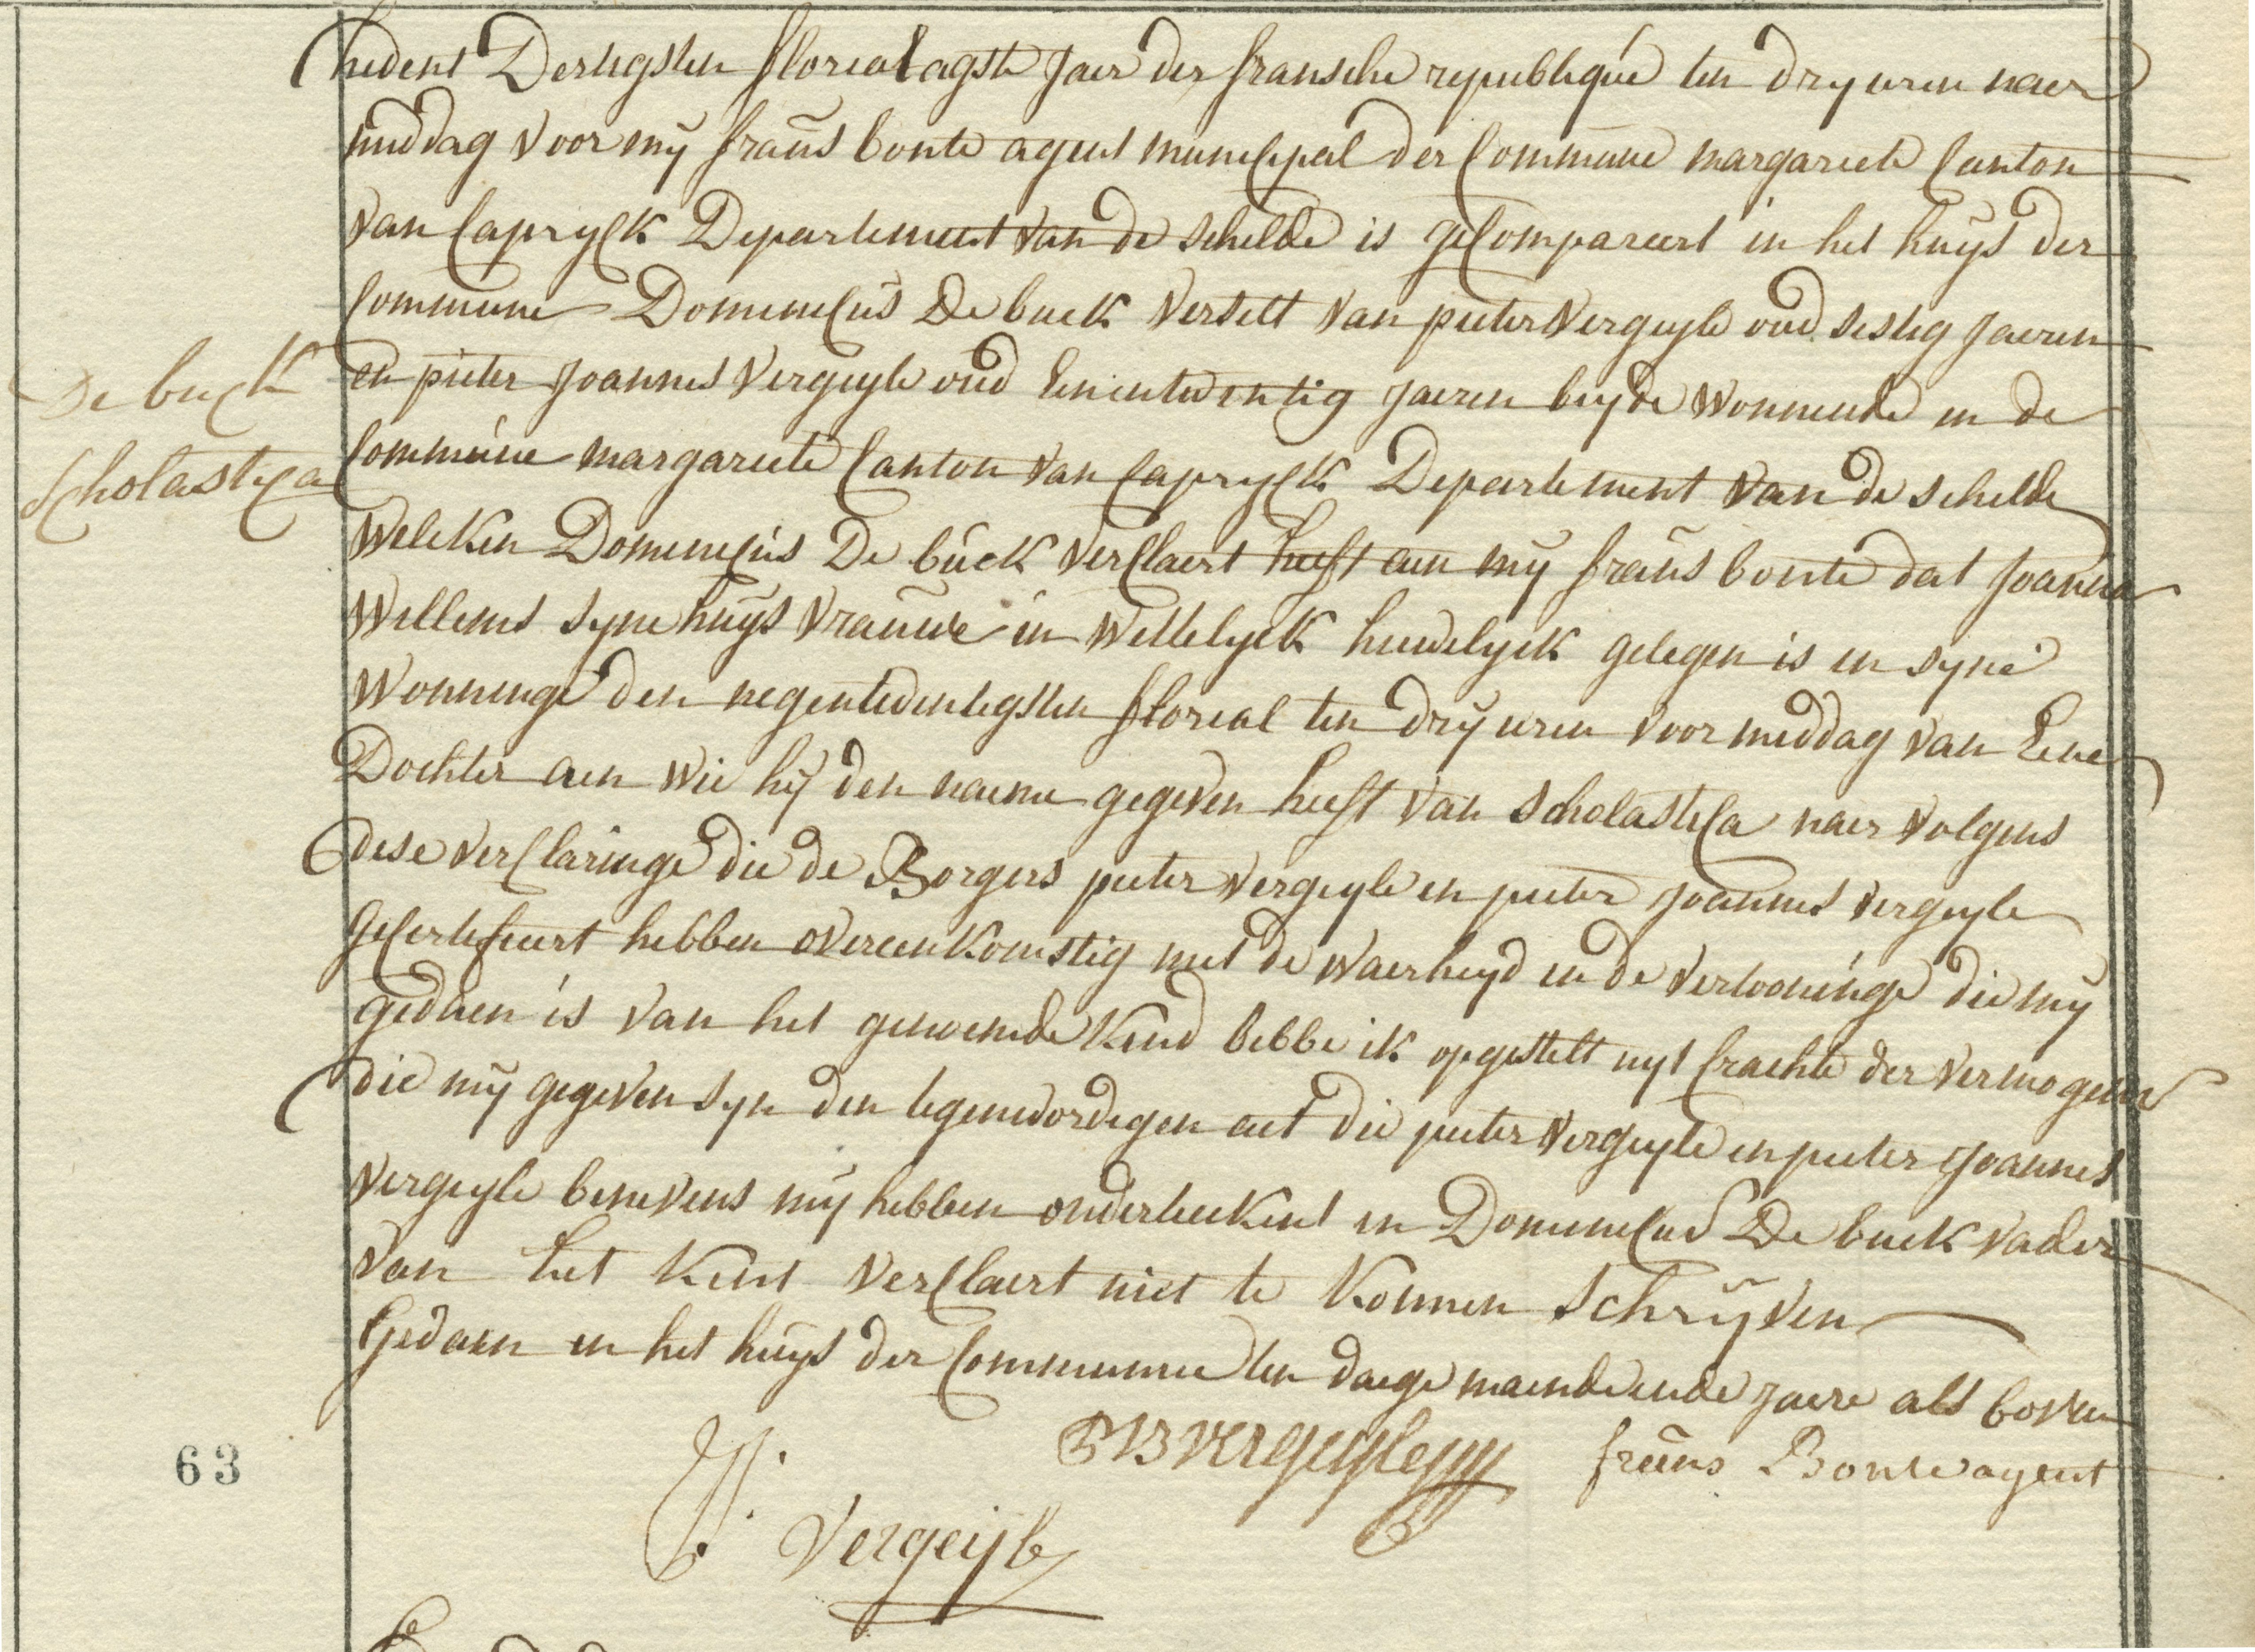 hedent Dertigsten floreal agste Jaer der fransche republique ten dry uren naer
middag voor mÿ frans bonte agent municipal der Commune margariete Canton
van Capryck Departement van de schelde is geCompareert in het huÿs der
Commune Dominicus De buck verselt van pieter Vergeyle oud sestig Jaeren
en pieter Joannes Vergeyle oud Eenentwentig Jaeren beyde wonnende in de
Commune margariete Canton van Capryck Departement van de schelde
De buck
Scholastica
Welcken Dominicus De buck verClaert heeft aen mÿ frans bonte dat Joanna
Willems syne huÿs vrauwe in wettelyck huwelyck gelegen is in syne
Wonninge den negentwentigsten floreal ten drÿ uren voor middag van Eene
Dochter aen wie hÿ den naeme gegeven heeft van scholastica naer volgens
dese verClaringe die de Borgers pieter vergeyle en pieter Joannes vergeyle
geCertifieert hebben overeenkomstig met de waerheyd en de vertooninge die mÿ
gedaen is van het genoemde kind hebbe ik opgestelt uyt Crachte der vermogens
die mÿ gegeven syn den tegenwordigen act die pieter vergeyle en pieter Joannes
vergeyle benevens mÿ hebben onderteekent en Dominicus De buck vader
van het kint verClaert niet te konnen schrÿven
Gedaen in het huÿs der Commune ten daege maende ende jaere als boven
PJ Vergeyle
frans Bonte agent
P. Vergeijle
63